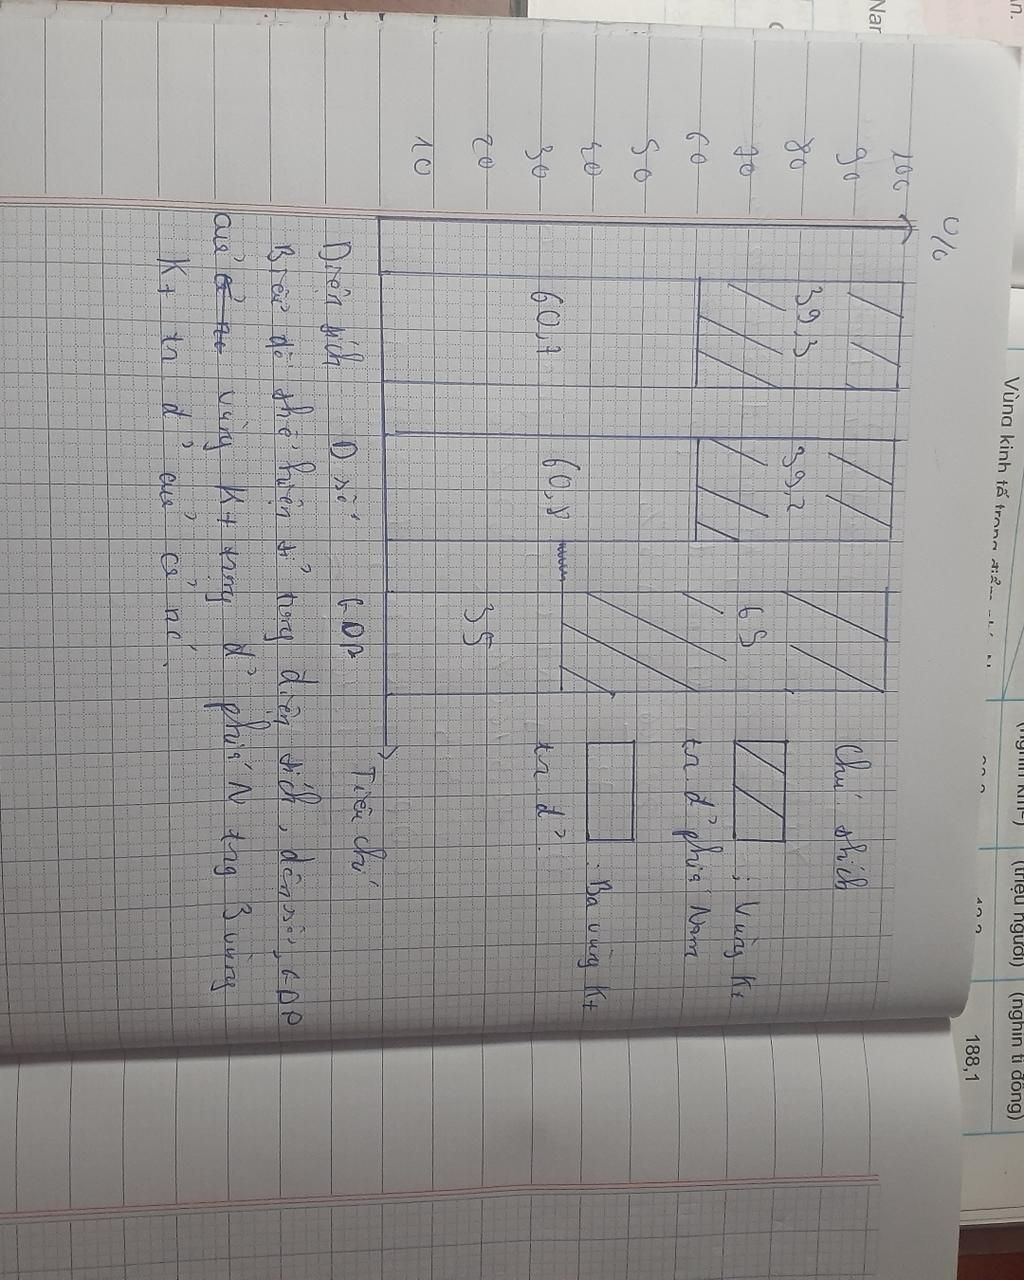 %
100
90
80
70
60
50
40
30
20
10
39,3
60,7
39,2
60,8
65
35
Diện tích
D số
GDP
Tiêu chí
Chú thích
: Vùng Kt
trı đ' phía Nam
: Ba vùng Kt
trı đ'.
Biểu đồ thể hiện tỉ trọng diện tích, dân số, GDP
của vùng Kt trọng đ' phía N trg 3 vùng
Kt trı đ' của cả nc'.
Vùng kinh tế trọng điểm
(nghìn km²)
(triệu người)
(nghìn tỉ đồng)
188,1
Nam